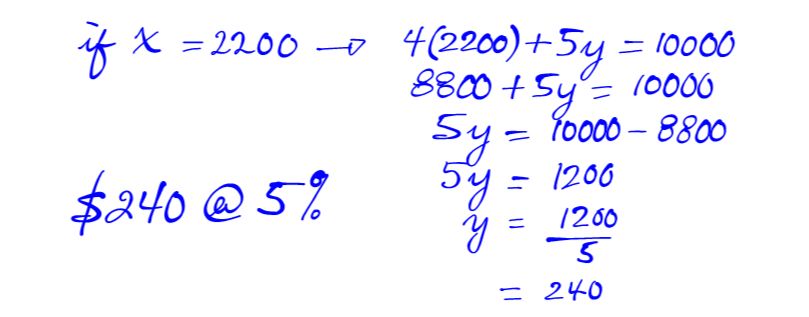 if x = 2200 → 4(2200) + 5y = 10000
8800 + 5y = 10000
5y = 10000 - 8800
5y = 1200
$240 @ 5%
y = 1200/5
= 240